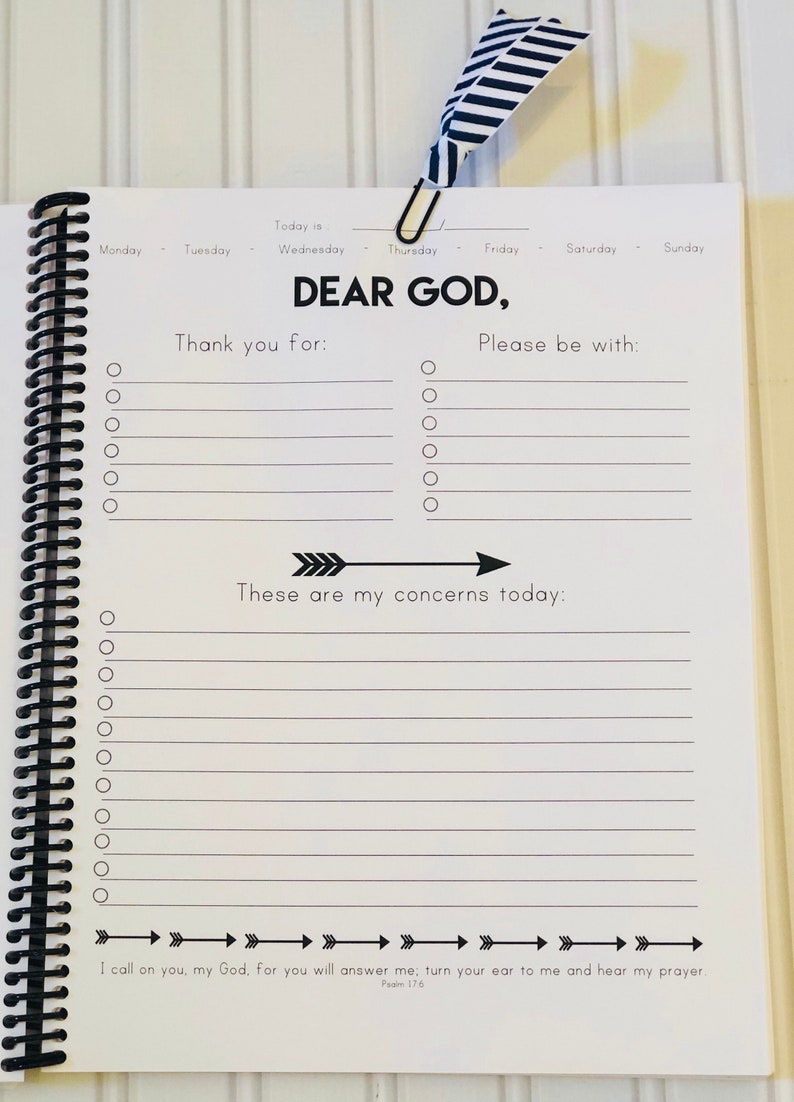 Today is : ____/____/____
Monday - Tuesday - Wednesday - Thursday - Friday - Saturday - Sunday
DEAR GOD,
Thank you for:
Please be with:
These are my concerns today:
I call on you, my God, for you will answer me; turn your ear to me and hear my prayer.
Psalm 17:6